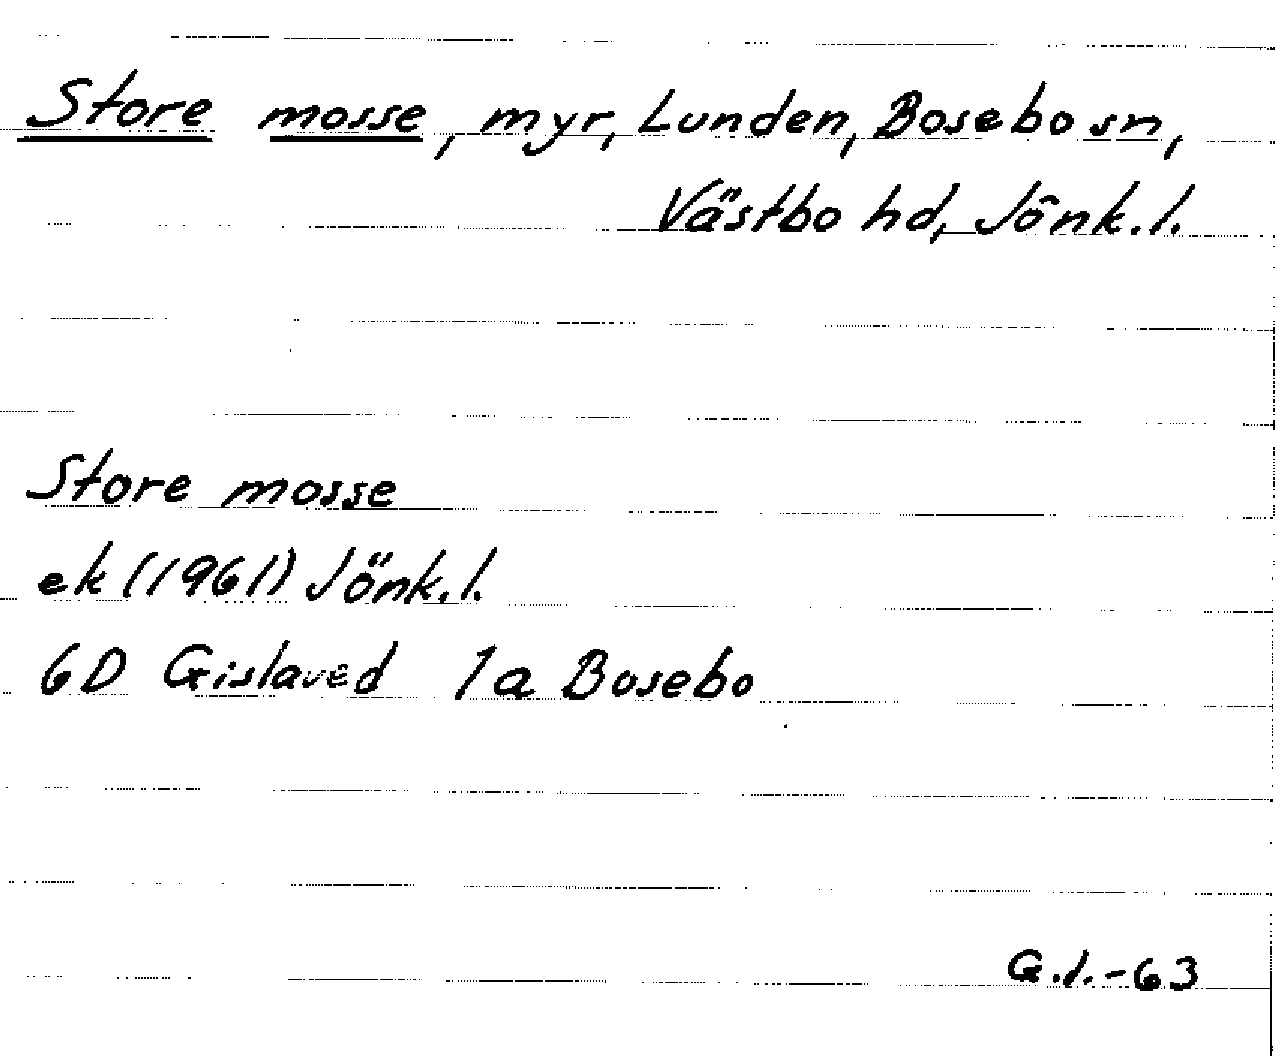 Store mosse, myr, Lunden, Bosebo sn,
Västbo hd, Jönk.l.
Store mosse
ek (1961) Jönk.l.
6D Gislaved 1a Bosebo
G.l.-63